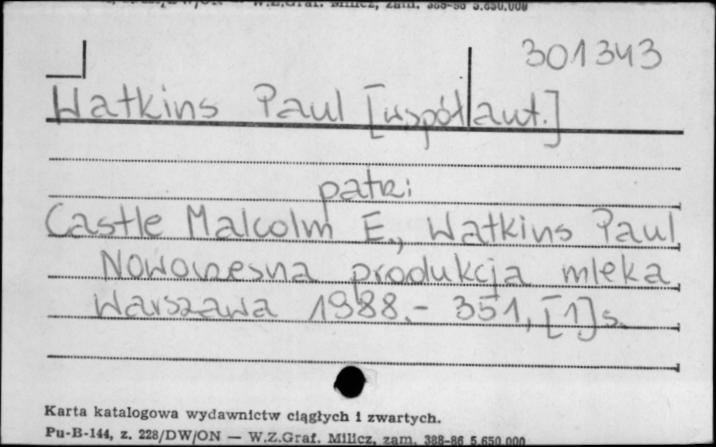 301343
Watkins Paul [współaut.]
patrz:
Castle Malcolm E., Watkins Paul
Nowoczesna produkcja mleka
Warszawa 1988.- 351, [1] s.
Karta katalogowa wydawnictw ciągłych i zwartych.
Pu-B-144, z. 228/DW/ON — W.Z.Graf. Milicz, zam. 388-86 5.650.000